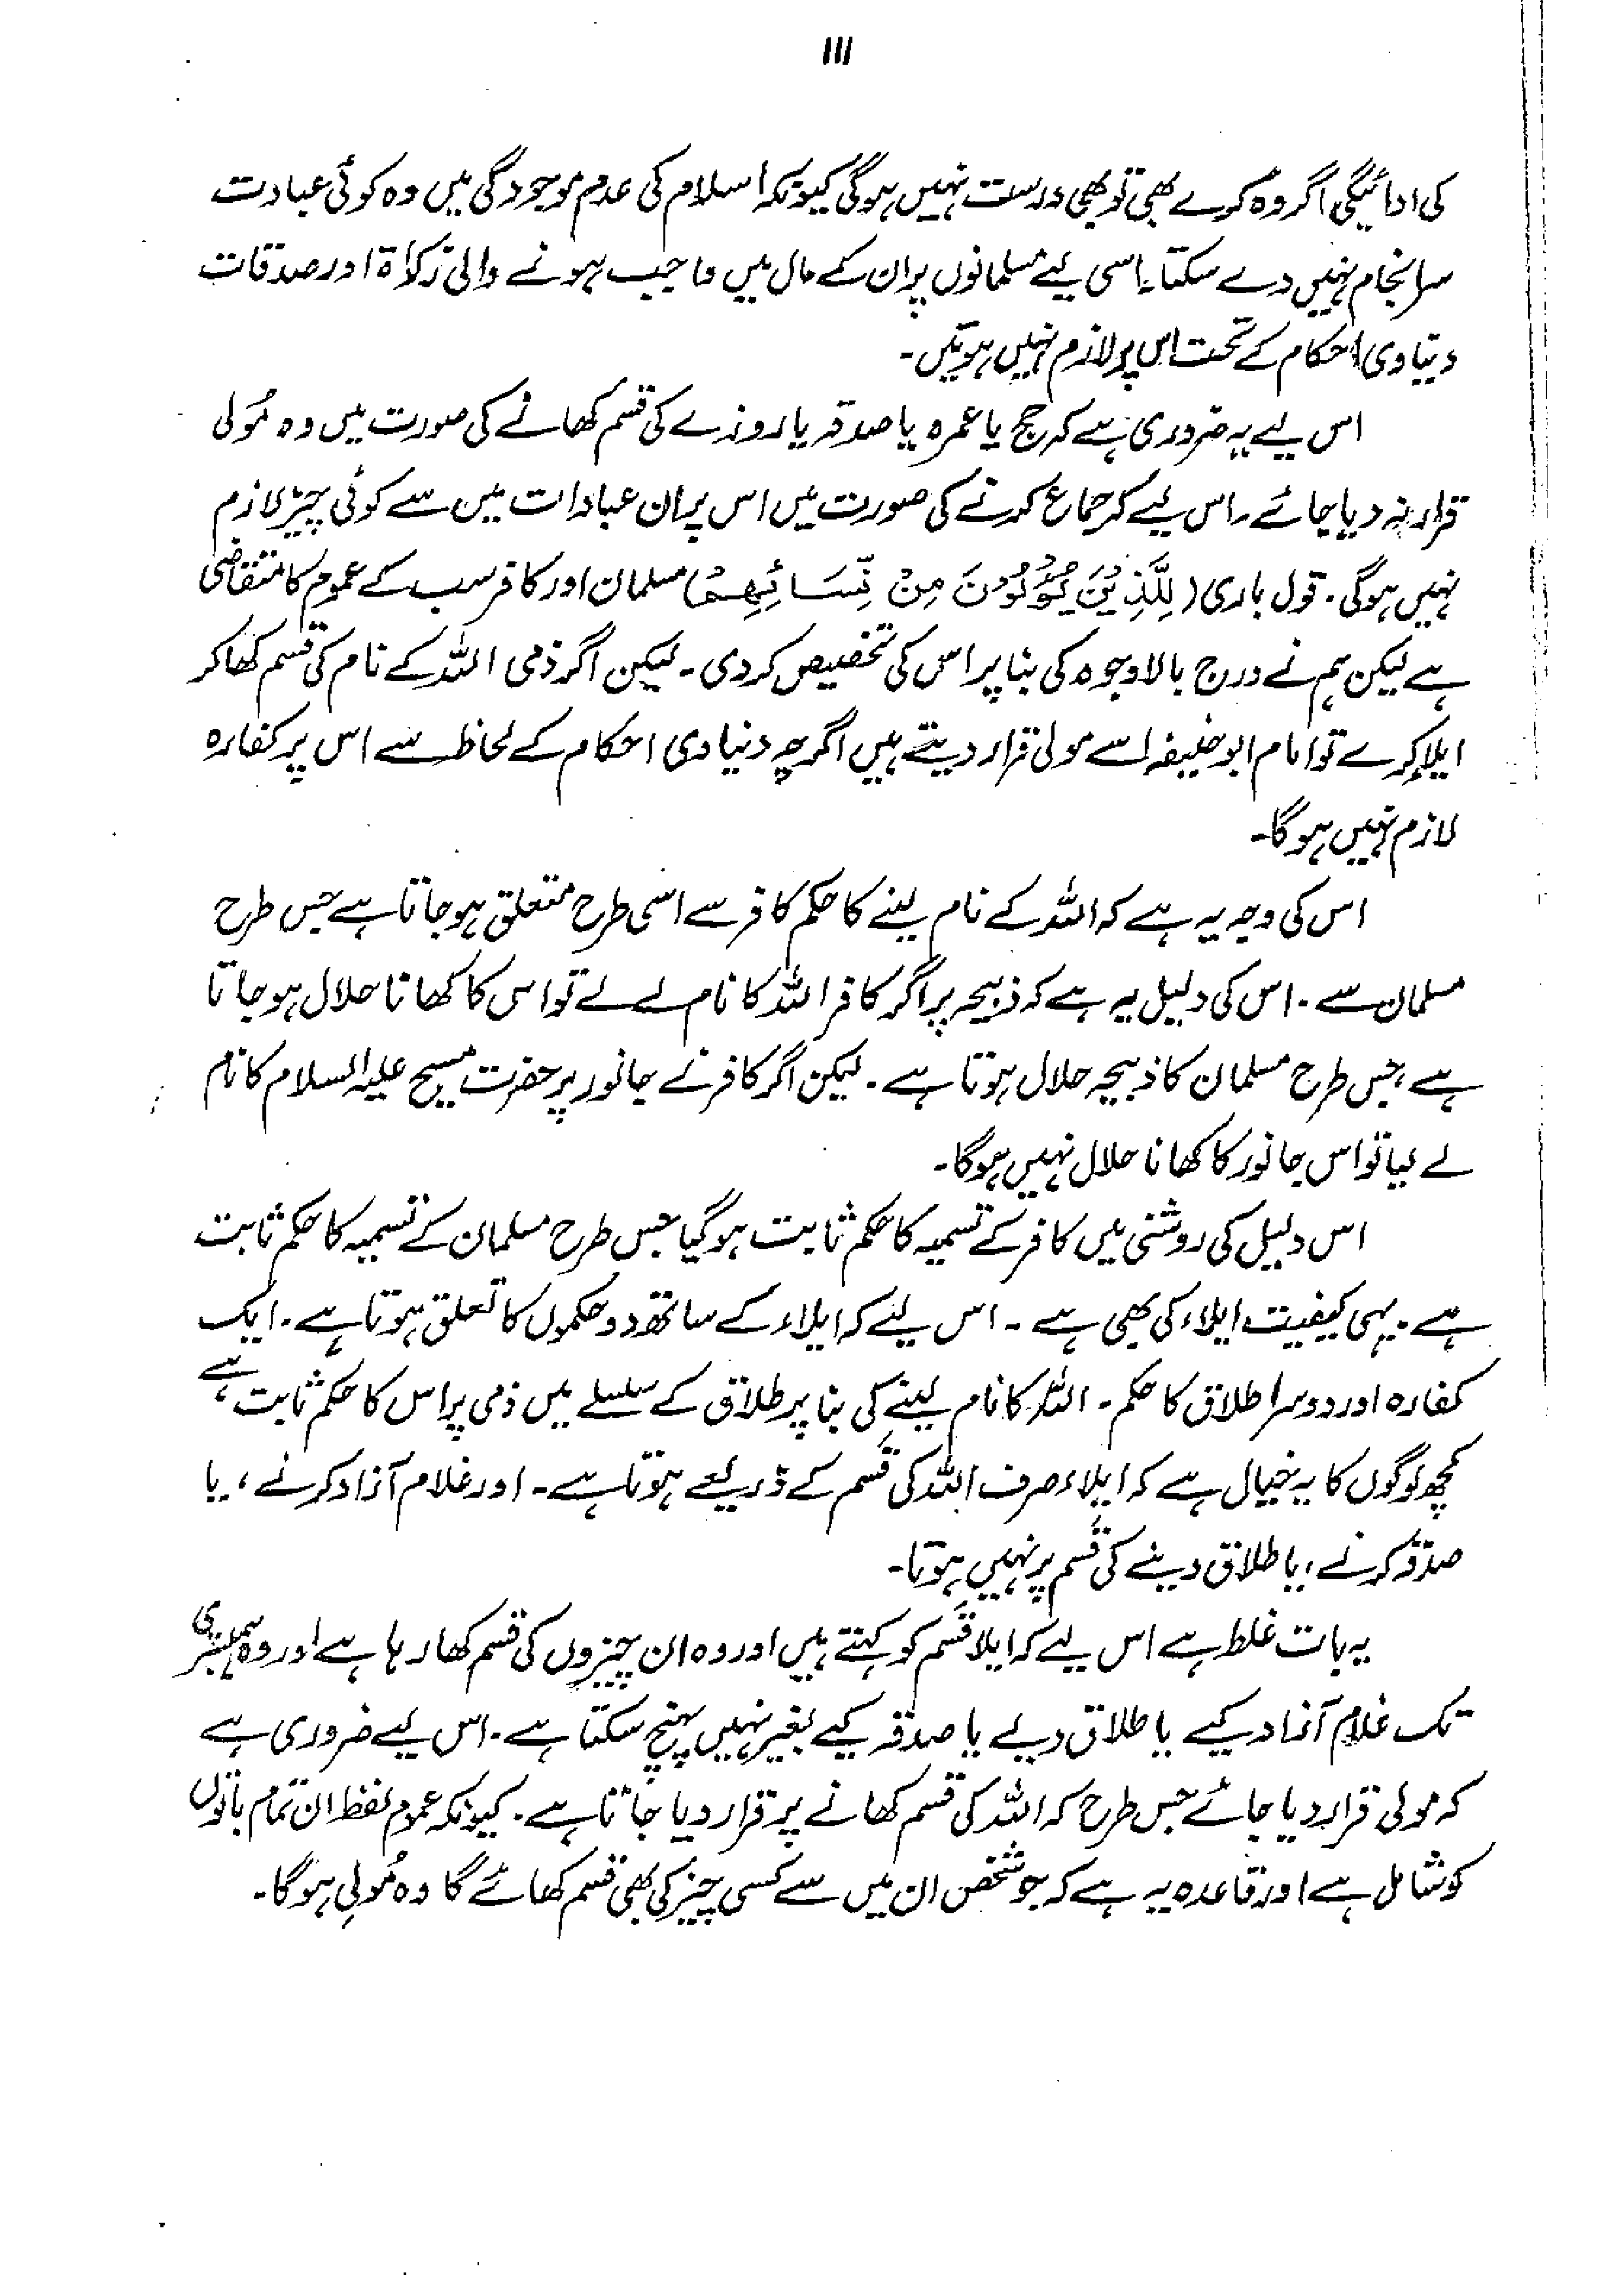 ۱۱۱
کی ادائیگی اگر وہ کرے بھی تو بھی درست نہیں ہوگی کیونکہ اسلام کی عدم موجودگی میں وہ کوئی عبادت
سرانجام نہیں دے سکتا۔ اسی لیے مسلمانوں پر ان کے مال میں واجب ہونے والی زکواۃ اور صدقات
دنیاوی احکام کے تحت اس پر لازم نہیں ہوتیں۔
اس لیے یہ ضروری ہے کہ حج یا عمرہ یا صدقہ یا روزے کی قسم کھانے کی صورت میں وہ مُولی
قرار نہ دیا جائے۔ اس لیے کہ جماع کرنے کی صورت میں اس پر ان عبادات میں سے کوئی چیز لازم
نہیں ہوگی۔ قول باری (لِلَّذِیْنَ یُؤْلُوْنَ مِنْ نِّسَائِهِمْ) مسلمان اور کافر سب کے عموم کا متقاضی
ہے لیکن ہم نے درج بالا وجوہ کی بنا پر اس کی تخصیص کردی۔ لیکن اگر ذمی اللہ کے نام کی قسم کھا کر
ایلا کرے تو امام ابو حنیفہ اسے مولی قرار دیتے ہیں اگرچہ دنیاوی احکام کے لحاظ سے اس پر کفارہ
لازم نہیں ہوگا۔
اس کی وجہ یہ ہے کہ اللہ کے نام لینے کا حکم کافر سے اسی طرح متعلق ہو جاتا ہے جس طرح
مسلمان سے۔ اس کی دلیل یہ ہے کہ ذبیحہ پر اگر کافر اللہ کا نام لے لے تو اس کا کھانا حلال ہو جاتا
ہے، جس طرح مسلمان کا ذبیحہ حلال ہوتا ہے۔ لیکن اگر کافر نے جانور پر حضرت مسیح علیہ السلام کا نام
لے لیا تو اس جانور کا کھانا حلال نہیں ہوگا۔
اس دلیل کی روشنی میں کافر کے تسمیہ کا حکم ثابت ہوگیا جس طرح مسلمان کے تسمیہ کا حکم ثابت
ہے۔ یہی کیفیت ایلاء کی بھی ہے۔ اس لیے کہ ایلاء کے ساتھ دو حکموں کا تعلق ہوتا ہے۔ ایک
کفارہ اور دوسرا طلاق کا حکم۔ اللہ کا نام لینے کی بنا پر طلاق کے سلسلے میں ذمی پر اس کا حکم ثابت ہے،
کچھ لوگوں کا یہ خیال ہے کہ ایلاء صرف اللہ کی قسم کے ذریعے ہوتا ہے۔ اور غلام آزاد کرنے، یا
صدقہ کرنے، یا طلاق دینے کی قسم پر نہیں ہوتا۔
یہ بات غلط ہے اس لیے کہ ایلا قسم کو کہتے ہیں اور وہ ان چیزوں کی قسم کھا رہا ہے اور وہ ہمبستری
تک غلام آزاد کیے یا طلاق دیے یا صدقہ کیے بغیر نہیں پہنچ سکتا ہے۔ اس لیے ضروری ہے
کہ مولی قرار دیا جائے جس طرح کہ اللہ کی قسم کھانے پر قرار دیا جاتا ہے۔ کیونکہ عموم لفظ ان تمام باتوں
کو شامل ہے اور قاعدہ یہ ہے کہ جو شخص ان میں سے کسی چیز کی بھی قسم کھائے گا وہ مُولِی ہوگا۔